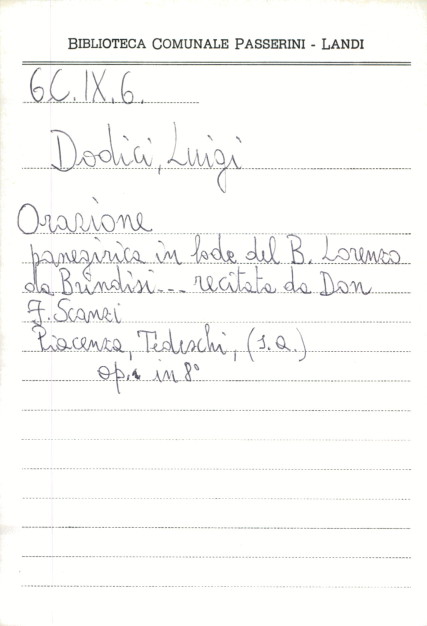 BIBLIOTECA COMUNALE PASSERINI - LANDI
6C.IX.6.
Dodici, Luigi
Orazione
panegirica in lode del B. Lorenzo
da Brindisi... recitata da Don
F. Scanzi
Piacenza, Tedeschi, (s.a.)
op. in 8°